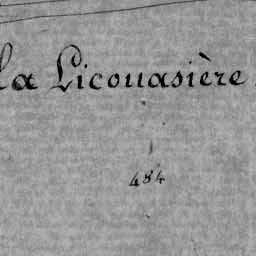 la Licouasière
484